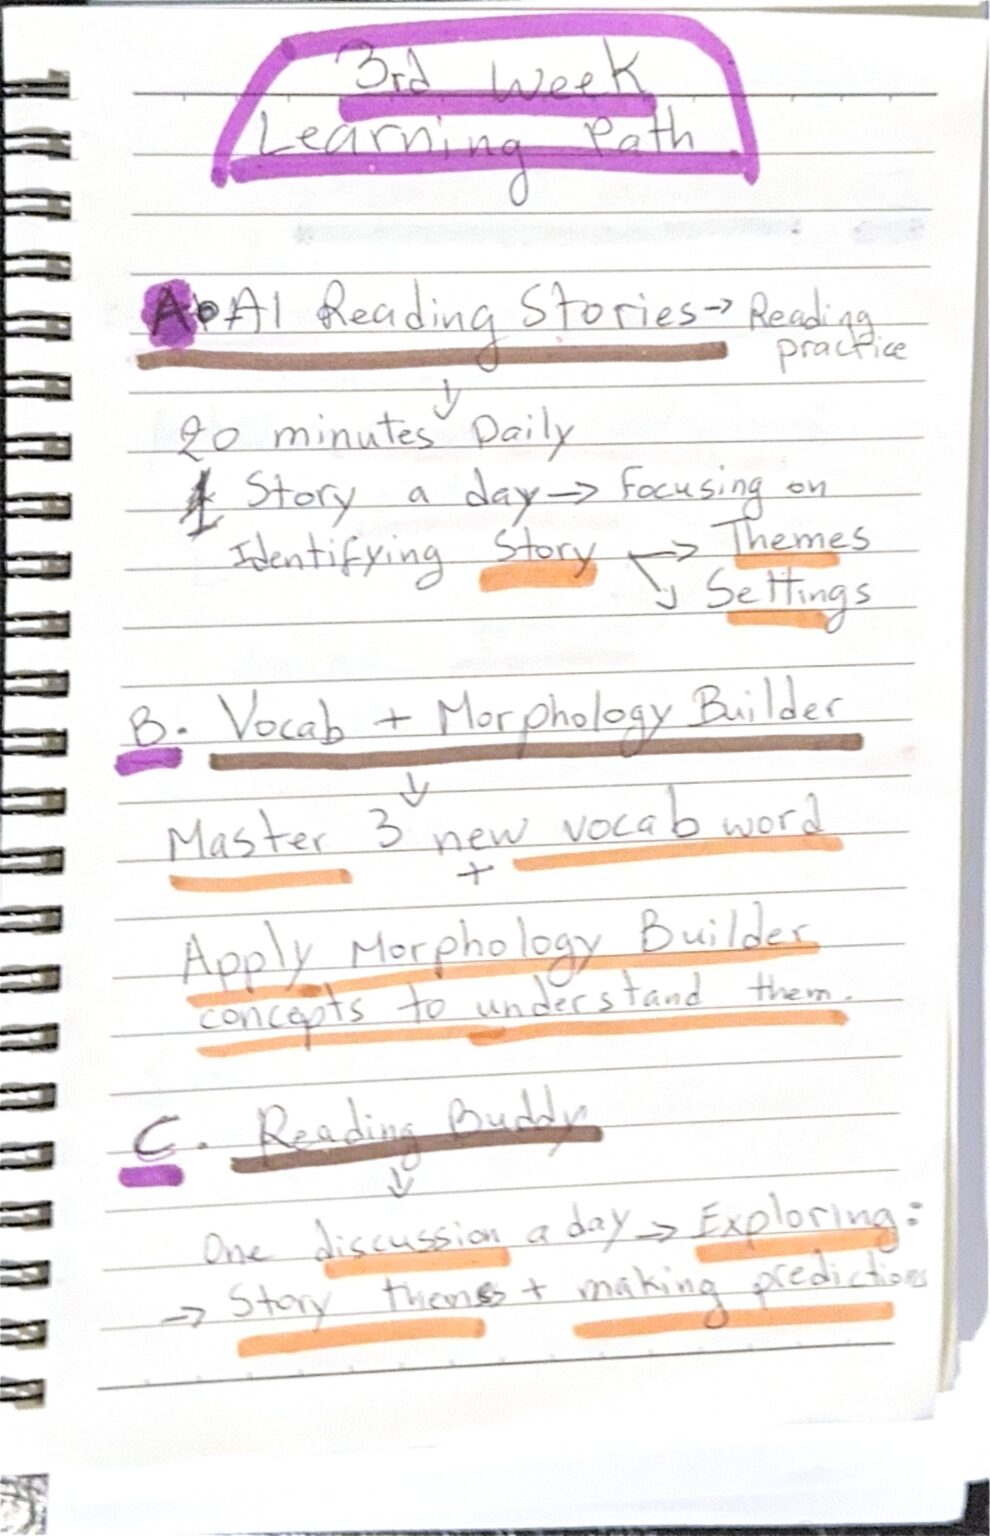 3rd Week
Learning Path
A. AI Reading Stories → Reading
practice
↓
20 minutes Daily
1 Story a day → Focusing on
Identifying Story → Themes
↘ Settings
B. Vocab + Morphology Builder
↓
Master 3 new vocab word
+
Apply Morphology Builder
concepts to understand them.
C. Reading Buddy
↓
One discussion a day → Exploring:
→ Story themes + making predictions